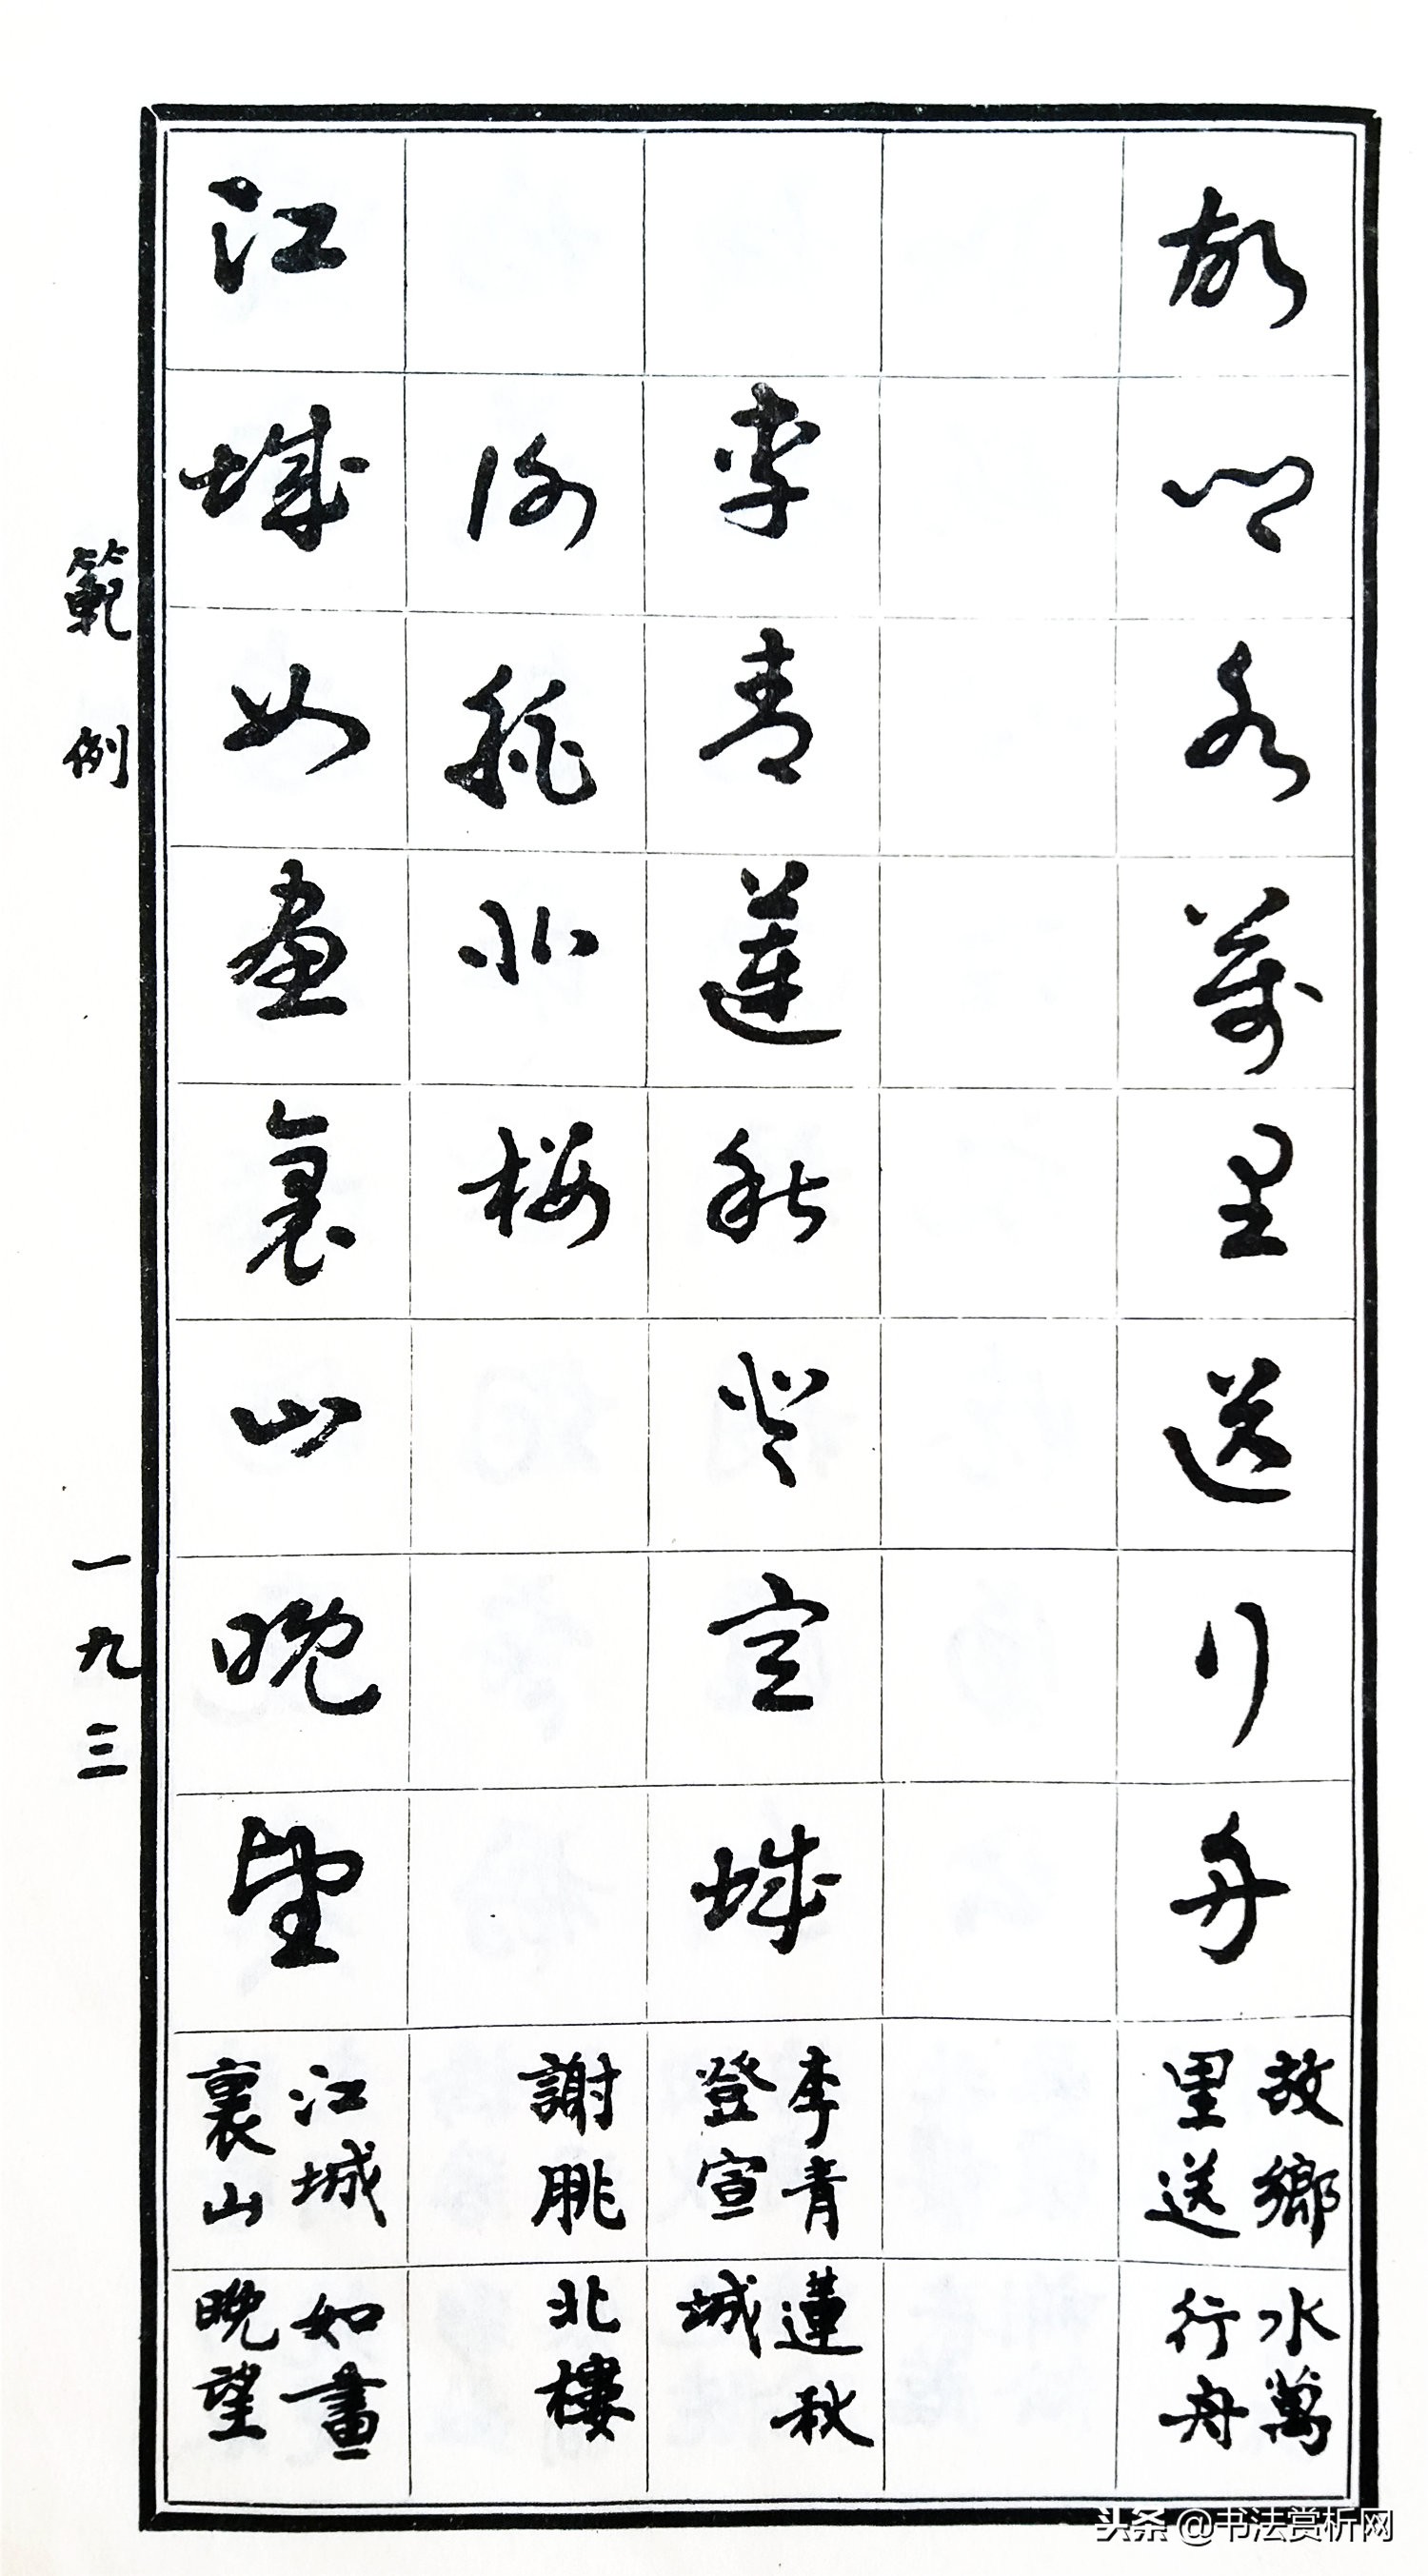 故鄉水萬里送行舟
故鄉水萬
里送行舟
李青蓮秋登宣城
李青蓮秋
登宣城
謝朓北樓
謝朓北樓
江城如畫裏山晚望
江城如畫
裏山晚望
範例
一九三
头条 @书法赏析网